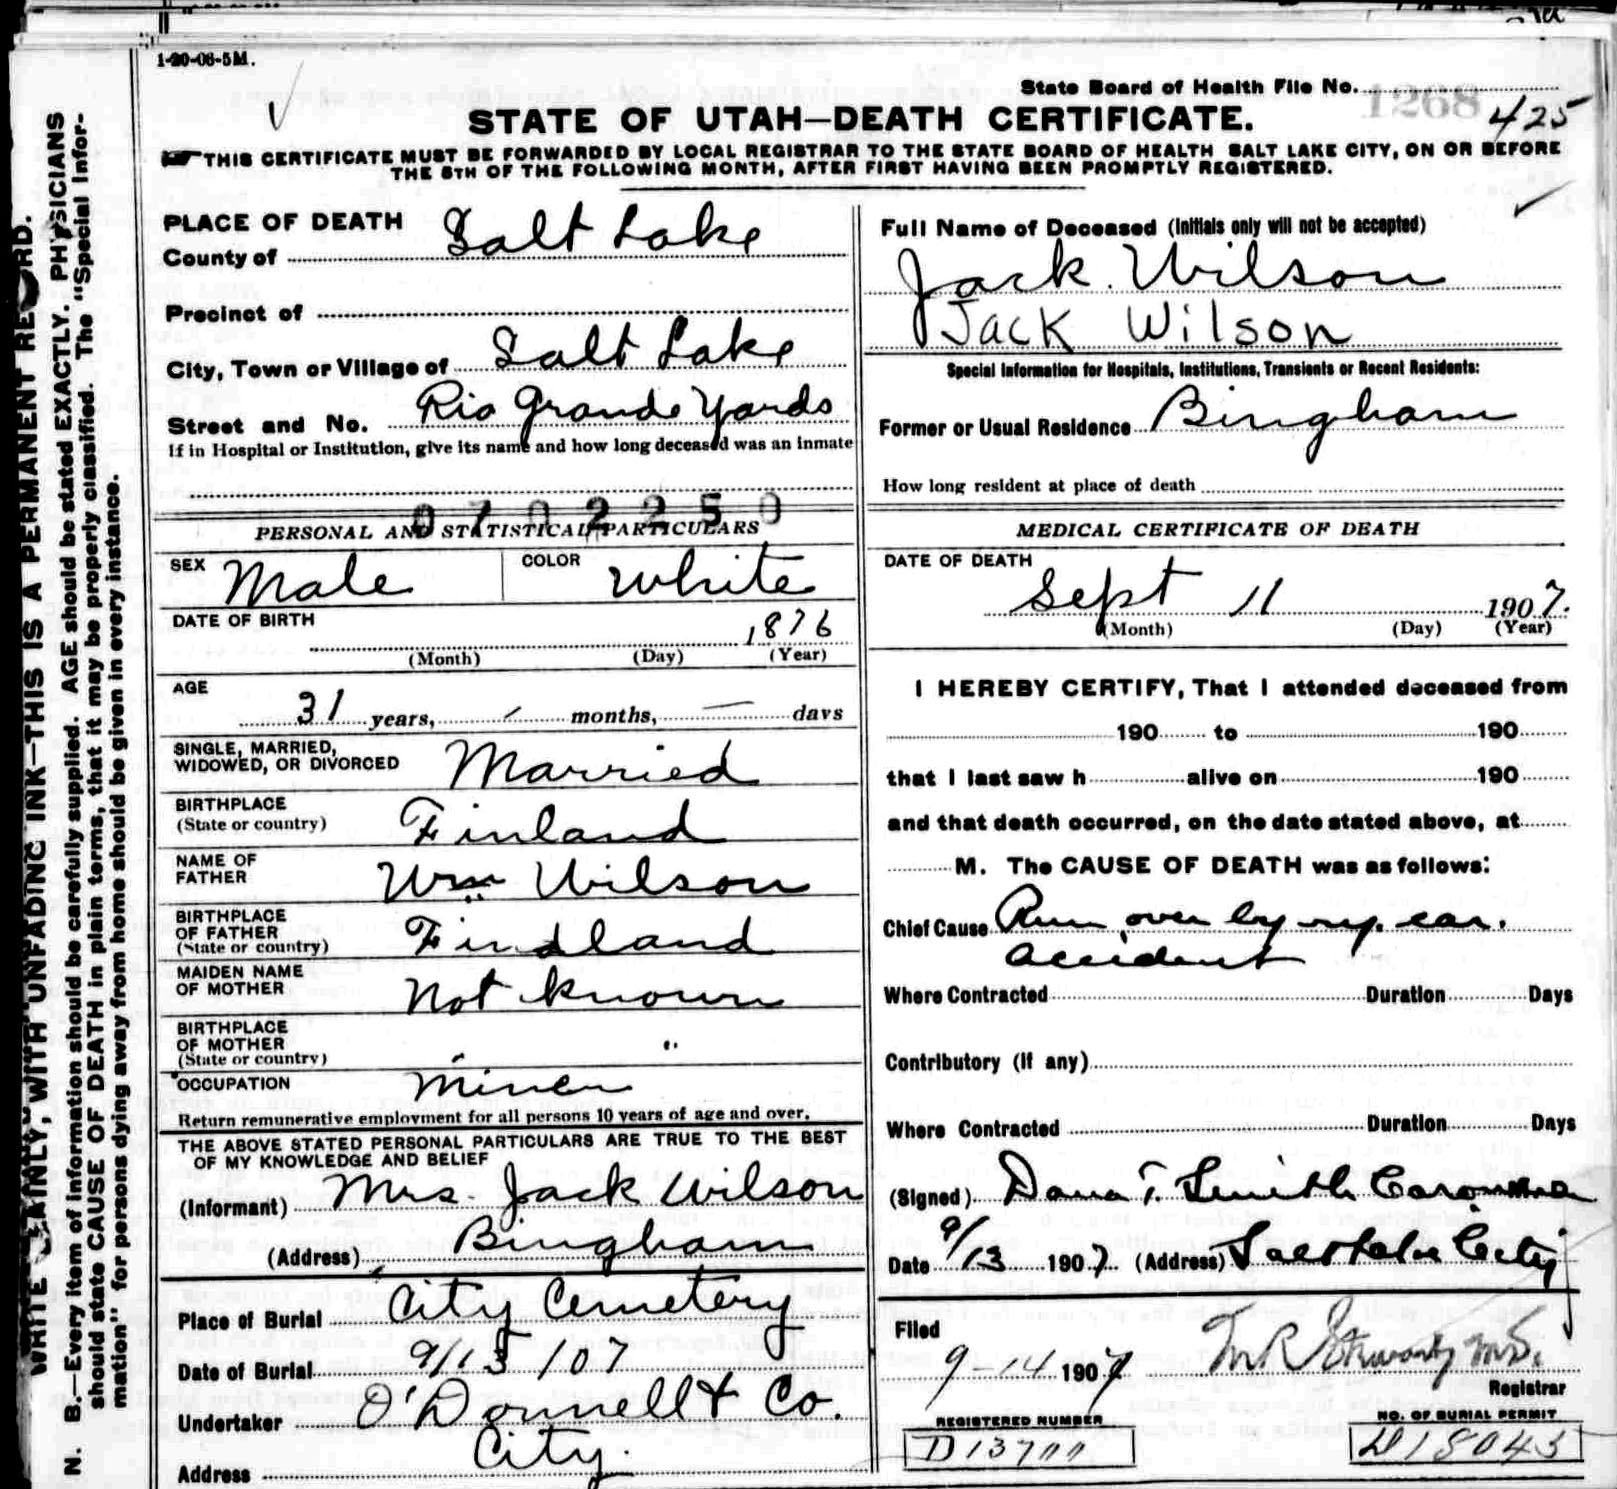 1-20-06-5M.
State Board of Health File No. 1268 425
STATE OF UTAH—DEATH CERTIFICATE.
THIS CERTIFICATE MUST BE FORWARDED BY LOCAL REGISTRAR TO THE STATE BOARD OF HEALTH SALT LAKE CITY, ON OR BEFORE
THE 5TH OF THE FOLLOWING MONTH, AFTER FIRST HAVING BEEN PROMPTLY REGISTERED.
WRITE PLAINLY, WITH UNFADING INK—THIS IS A PERMANENT RECORD.
N. B.—Every item of information should be carefully supplied. AGE should be stated EXACTLY. PHYSICIANS
should state CAUSE OF DEATH in plain terms, that it may be properly classified. The "Special Infor-
mation" for persons dying away from home should be given in every instance.
PLACE OF DEATH
County of Salt Lake
Precinct of
City, Town or Village of Salt Lake
Street and No. Rio Grande Yards
If in Hospital or Institution, give its name and how long deceased was an inmate
0702250
PERSONAL AND STATISTICAL PARTICULARS
SEX Male COLOR White
DATE OF BIRTH 1876
(Month) (Day) (Year)
AGE
31 years, — months, — days
SINGLE, MARRIED,
WIDOWED, OR DIVORCED Married
BIRTHPLACE
(State or country) Finland
NAME OF
FATHER Wm Wilson
BIRTHPLACE
OF FATHER
(State or country) Findland
MAIDEN NAME
OF MOTHER Not known
BIRTHPLACE
OF MOTHER
(State or country) " "
OCCUPATION Miner
Return remunerative employment for all persons 10 years of age and over.
THE ABOVE STATED PERSONAL PARTICULARS ARE TRUE TO THE BEST
OF MY KNOWLEDGE AND BELIEF
(Informant) Mrs. Jack Wilson
(Address) Bingham
Place of Burial City Cemetery
Date of Burial 9/15/07
Undertaker O'Donnell & Co.
Address City.
Full Name of Deceased (Initials only will not be accepted)
Jack Wilson
Jack Wilson
Special Information for Hospitals, Institutions, Transients or Recent Residents:
Former or Usual Residence Bingham
How long resident at place of death
MEDICAL CERTIFICATE OF DEATH
DATE OF DEATH
Sept 11 1907.
(Month) (Day) (Year)
I HEREBY CERTIFY, That I attended deceased from
190 to 190
that I last saw h alive on 190
and that death occurred, on the date stated above, at
M. The CAUSE OF DEATH was as follows:
Chief Cause Run over by ry. car.
Accident
Where Contracted Duration Days
Contributory (if any)
Where Contracted Duration Days
(Signed) Dana T. Smith Coroner
Date 9/13 1907. (Address) Salt Lake City
Filed
9-14 1907 M R Stewart M.D.
Registrar
REGISTERED NUMBER
NO. OF BURIAL PERMIT
D 18045